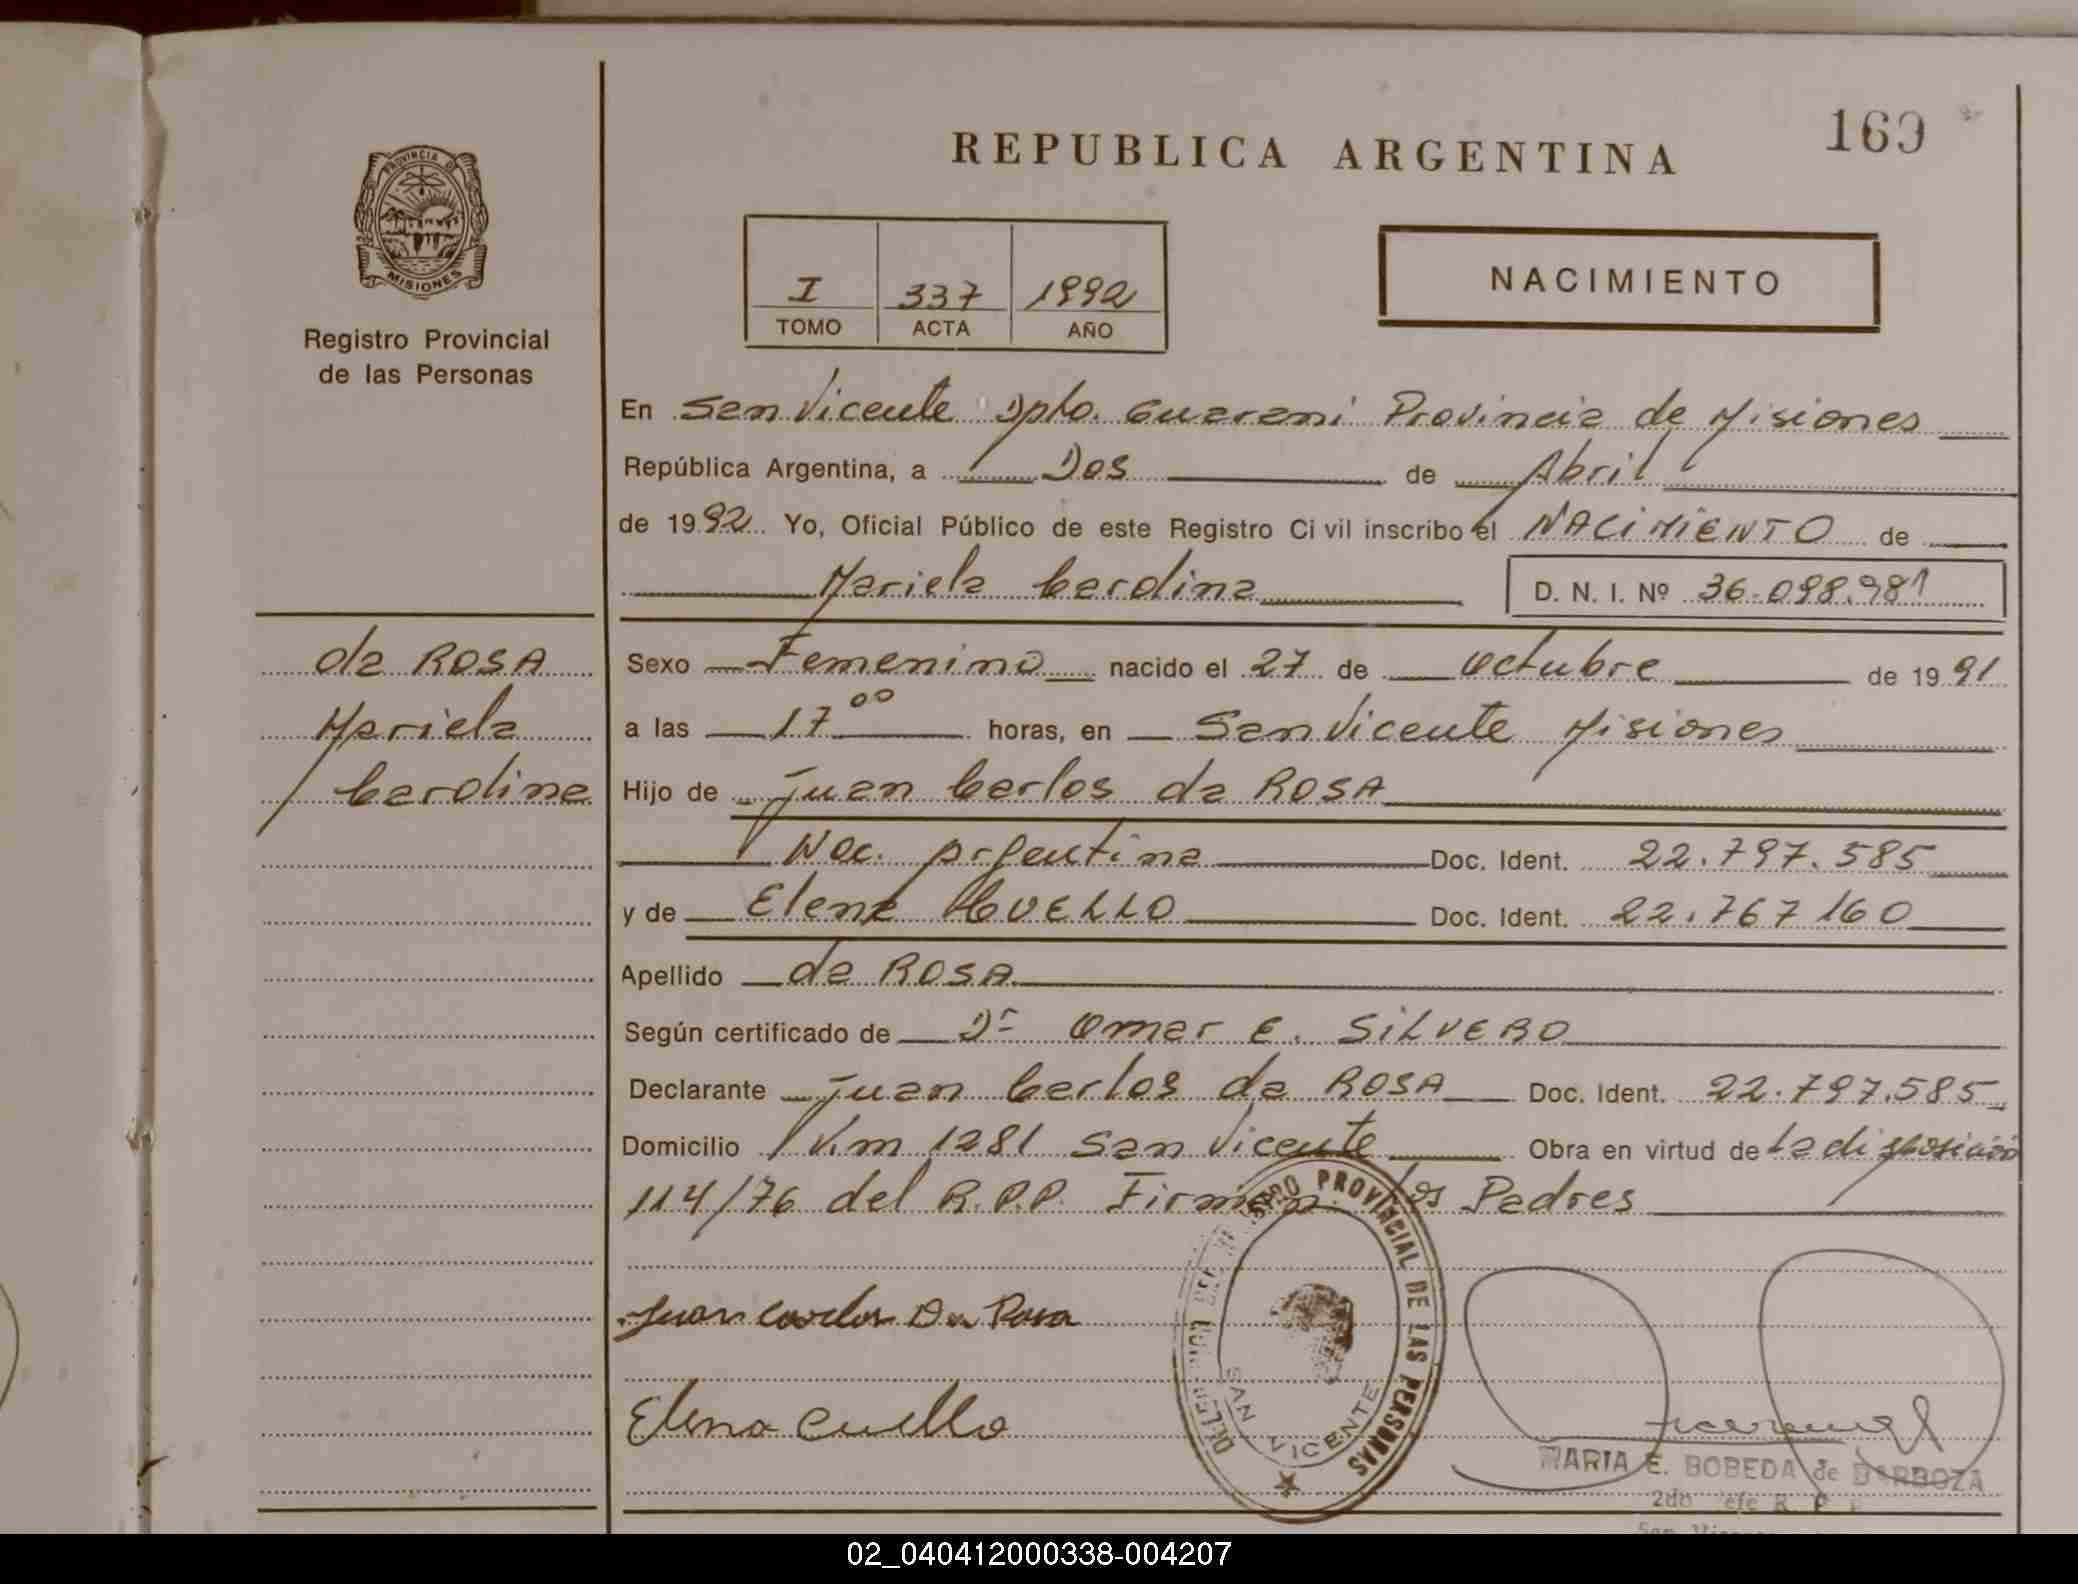 REPUBLICA ARGENTINA
169
PROVINCIA DE
MISIONES
Registro Provincial
de las Personas
I 337 1992
TOMO ACTA AÑO
NACIMIENTO
En San Vicente Dpto. Guaraní Provincia de Misiones
República Argentina, a Dos de Abril
de 1992 Yo, Oficial Público de este Registro Civil inscribo el NACIMIENTO de
Mariela Carolina D. N. I. Nº 36.098.981
da ROSA
Mariela
Carolina
Sexo Femenino nacido el 27 de octubre de 1991
a las 17 oo horas, en San Vicente Misiones
Hijo de Juan Carlos da ROSA
Nac. Argentina Doc. Ident. 22.797.585
y de Elena CUELLO Doc. Ident. 22.767 160
Apellido da ROSA
Según certificado de Dr Omar E. SILVERO
Declarante Juan Carlos da ROSA Doc. Ident. 22.797.585
Domicilio Km 1281 San Vicente Obra en virtud de La disposición
114/76 del R.P.P. Firman los Padres
Juan Carlos Da Rosa
Elena Cuello
PROVINCIAL DE LAS PERSONAS
SAN VICENTE
MARIA E. BOBEDA de BARBOZA
2do Jefe R. P. P.
02_040412000338-004207